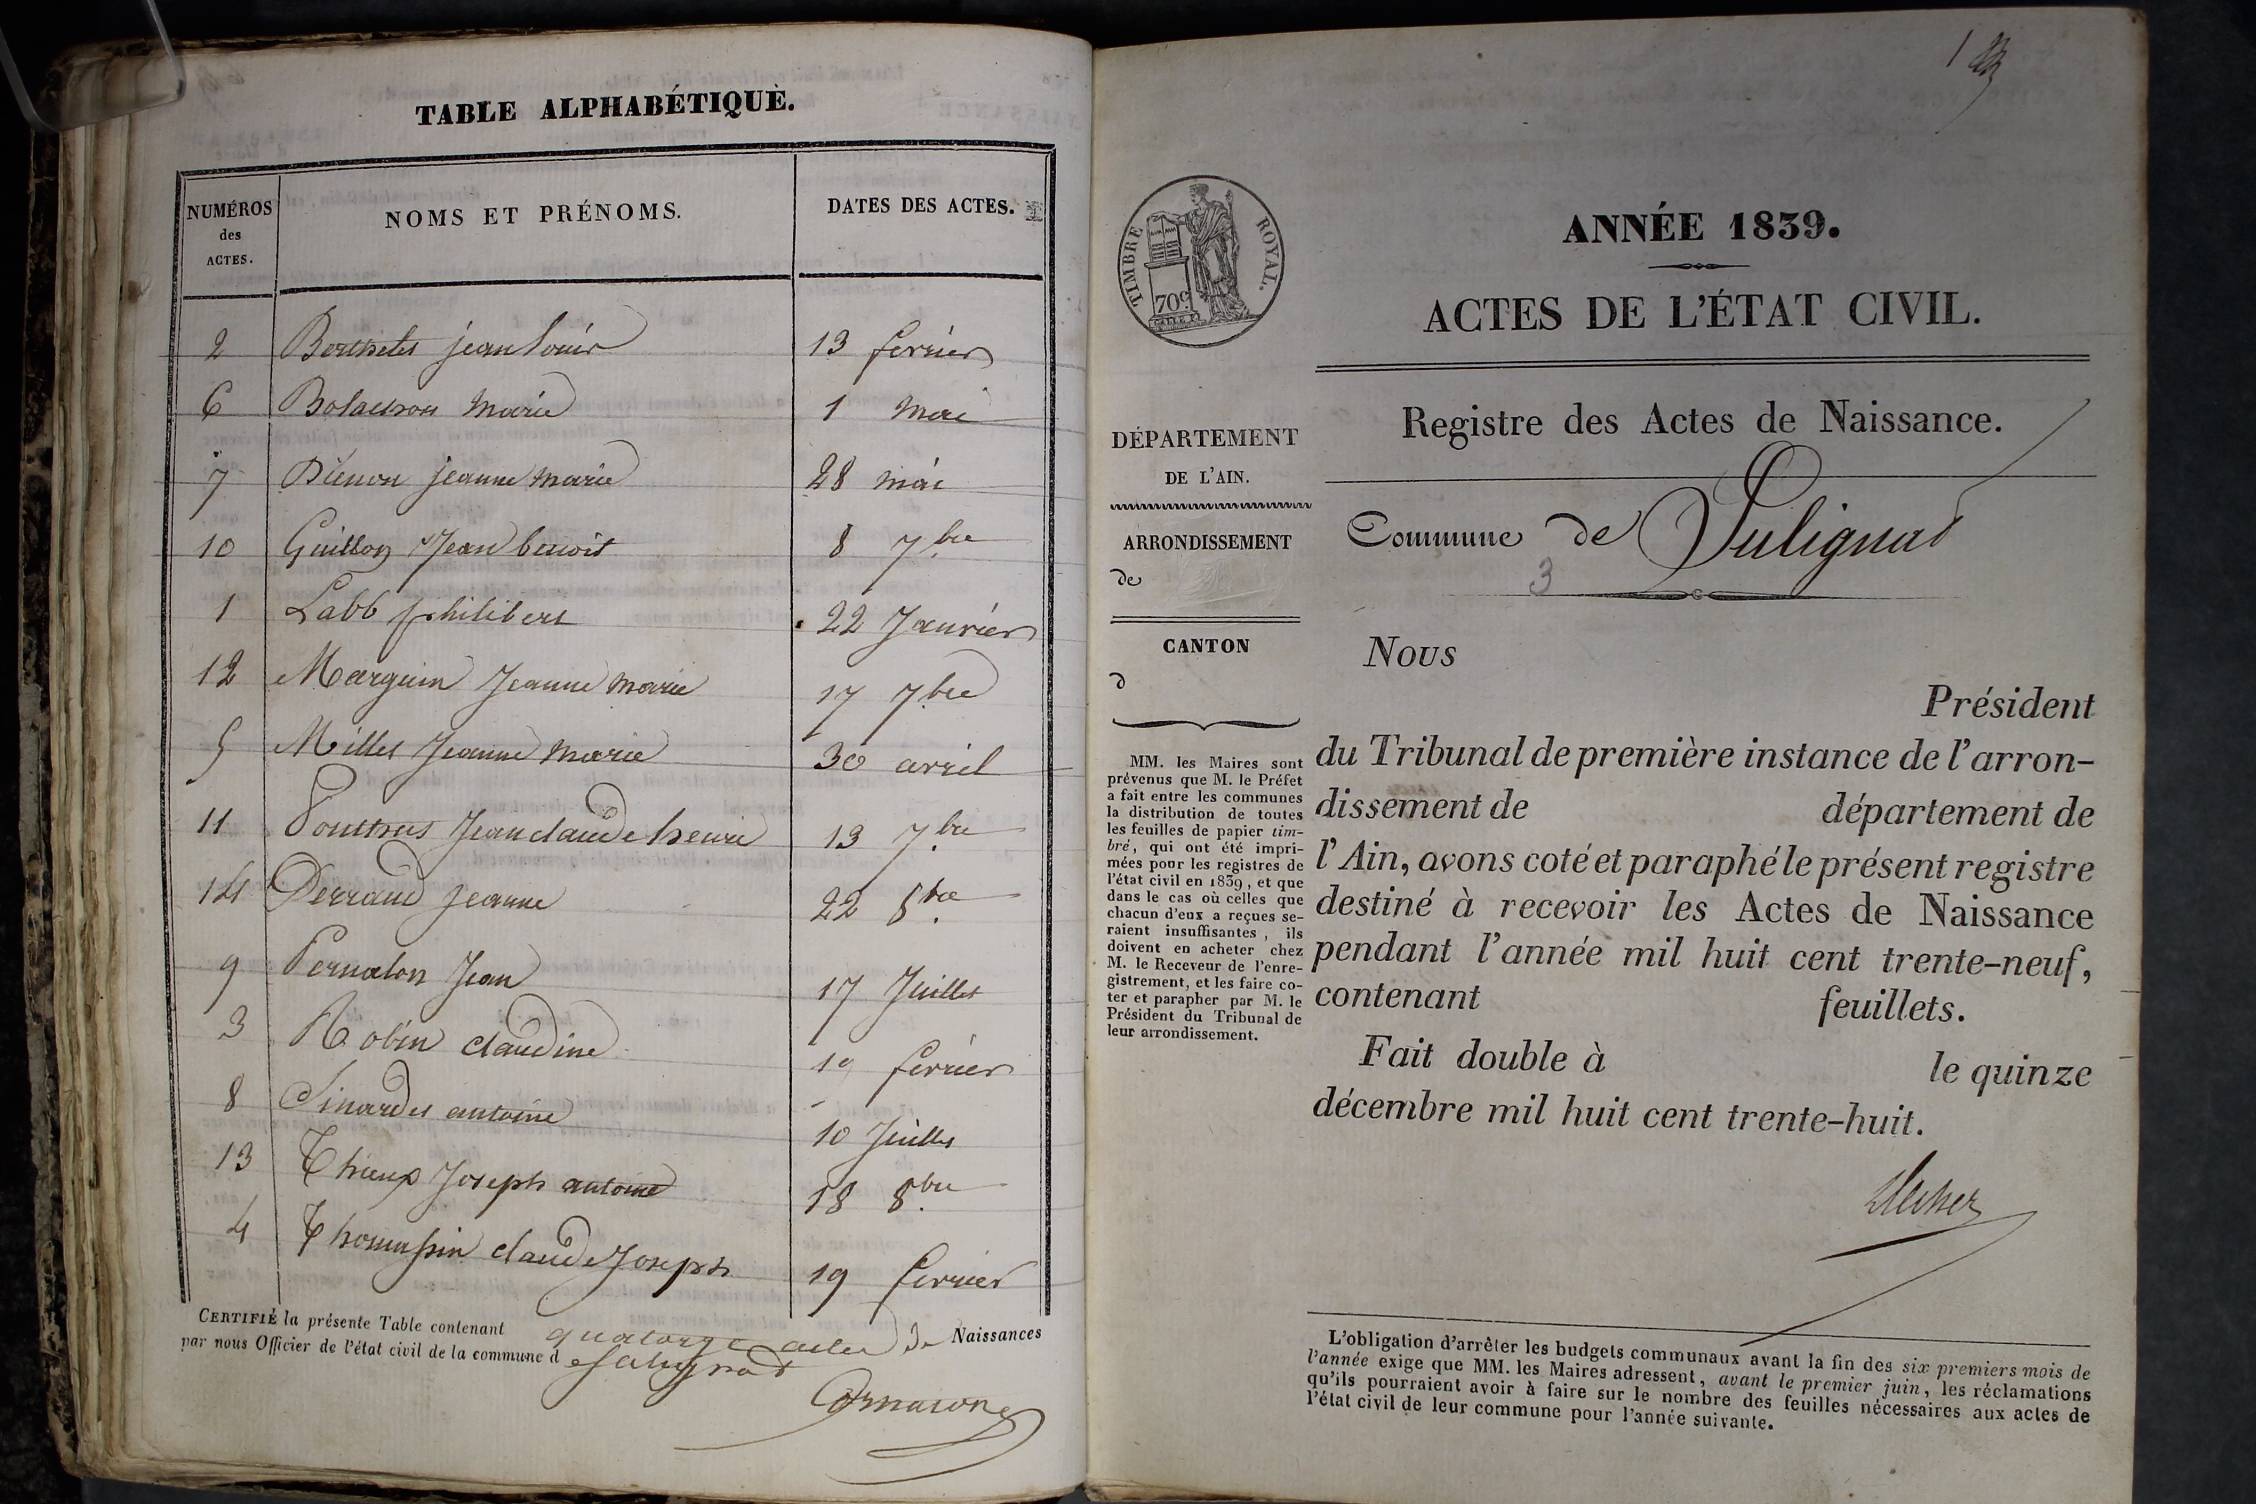 TABLE ALPHABÉTIQUE.
NUMÉROS
des
ACTES.
NOMS ET PRÉNOMS.
DATES DES ACTES.
2 jean Louis 13 fevrier
6 Marie 1 Mai
7 jeanne Marie 28 mai
10 Guillon Jean benoit 8 7bre
1 Labb philibert 22 Janvier
12 Marguin Jeanne Marie 17 7bre
5 Millet Jeanne Marie 30 avril
11 Jean claude henrie 13 7bre
14 Perraud Jeanne 22 8bre
9 Pernalon Jean 17 Juillet
3 Robin claudine 19 fevrier
8 antoine 10 Juillet
13 Joseph antoine 18 8bre
4 Thomassin claude Joseph 19 fevrier
CERTIFIÉ la présente Table contenant quatorze actes de Naissances
par nous Officier de l'état civil de la commune d
1
TIMBRE ROYAL.
70c
ANNÉE 1839.
ACTES DE L'ÉTAT CIVIL.
Registre des Actes de Naissance.
Commune de
3
DÉPARTEMENT
DE L'AIN.
ARRONDISSEMENT
de
CANTON
d
MM. les Maires sont
prévenus que M. le Préfet
a fait entre les communes
la distribution de toutes
les feuilles de papier tim-
bré, qui ont été impri-
mées pour les registres de
l'état civil en 1839, et que
dans le cas où celles que
chacun d'eux a reçues se-
raient insuffisantes, ils
doivent en acheter chez
M. le Receveur de l'enre-
gistrement, et les faire co-
ter et parapher par M. le
Président du Tribunal de
leur arrondissement.
Nous
Président
du Tribunal de première instance de l'arron-
dissement de département de
l'Ain, avons coté et paraphé le présent registre
destiné à recevoir les Actes de Naissance
pendant l'année mil huit cent trente-neuf,
contenant feuillets.
Fait double à le quinze
décembre mil huit cent trente-huit.
L'obligation d'arrêter les budgets communaux avant la fin des six premiers mois de
l'année exige que MM. les Maires adressent, avant le premier juin, les réclamations
qu'ils pourraient avoir à faire sur le nombre des feuilles nécessaires aux actes de
l'état civil de leur commune pour l'année suivante.